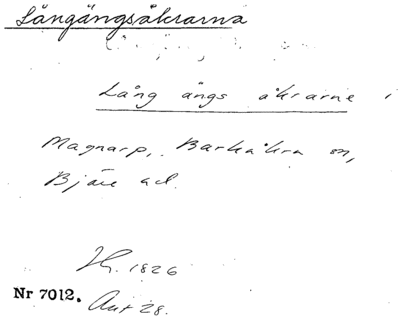 Långängsåkrarna
Lång ängs åkrarne i
Magnarp, Barkåkra sn,
Bjäre hd.
1826
Nr 7012. Akt 28.